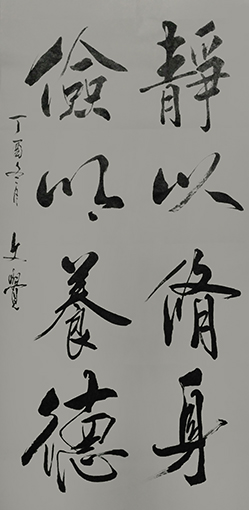 靜以脩身
儉以養德
丁酉冬月
文寶